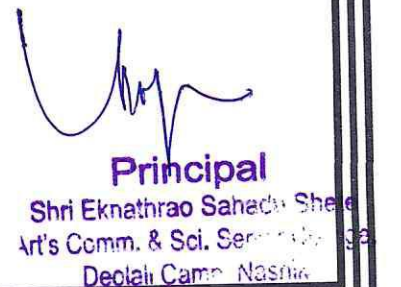 Principal
Shri Eknathrao Sahadu Shete
Art's Comm. & Sci.
Deolali Camp Nashik